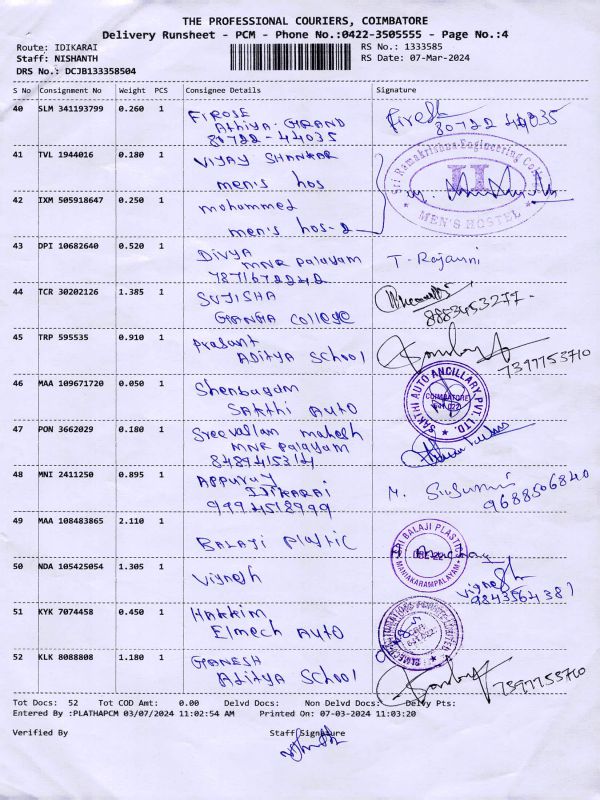 THE PROFESSIONAL COURIERS, COIMBATORE
Delivery Runsheet - PCM - Phone No.:0422-3505555 - Page No.:4
Route: IDIKARAI RS No.: 1333585
Staff: NISHANTH RS Date: 07-Mar-2024
DRS No.: DCJB133358504
S No Consignment No Weight PCS Consignee Details Signature
40 SLM 341193799 0.260 1 FIROSE
Athiya. GRAND
80722-44035
Firosh
80722 44035
41 TVL 1944016 0.180 1 VIJAY SHANKAR
men's hos
Sri Ramakrishna Engineering Co
MEN'S HOSTEL
42 IXM 505918647 0.250 1 mohammed
men's hos-2
43 DPI 10682640 0.520 1 DIVYA
MNR Palayam
7871672242
T. Rajauni
44 TCR 30202126 1.385 1 SUJISHA
GANGA College
8883453277
45 TRP 595535 0.910 1 prasant
ADITYA School
7397753710
46 MAA 109671720 0.050 1 Shenbagam
SAKthi AUTO
SAKTHI AUTO ANCILLARY PVT. LTD.
COIMBATORE
47 PON 3662029 0.180 1 Sreevallam mahesh
MNR palayam
8489415314
48 MNI 2411250 0.895 1 APPURAY
IDIKARAI
9994518999
M.
9688506840
49 MAA 108483865 2.110 1
BALAJI Plastic
SRI BALAJI PLASTIC
MANIAKARAMPALAYAM
50 NDA 105425054 1.305 1 Vignesh
Vignesh
9843564381
51 KYK 7074458 0.450 1 HAKKIM
Elmech AUTO
52 KLK 8088808 1.180 1 GANESH
Aditya School
7397753710
Tot Docs: 52 Tot COD Amt: 0.00 Delvd Docs: Non Delvd Docs: Delvy Pts:
Entered By :PLATHAPCM 03/07/2024 11:02:54 AM Printed On: 07-03-2024 11:03:20
Verified By Staff Signature